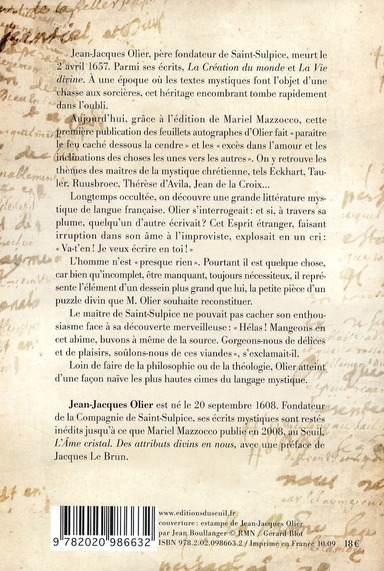 Jean-Jacques Olier, père fondateur de Saint-Sulpice, meurt le
2 avril 1657. Parmi ses écrits, La Création du monde et La Vie
divine. À une époque où les textes mystiques font l'objet d'une
chasse aux sorcières, cet héritage encombrant tombe rapidement
dans l'oubli.
Aujourd'hui, grâce à l'édition de Mariel Mazzocco, cette
première publication des feuillets autographes d'Olier fait « paraître
le feu caché dessous la cendre » et les « excès dans l'amour et les
inclinations des choses les unes vers les autres ». On y retrouve les
thèmes des maitres de la mystique chrétienne, tels Eckhart, Tau-
ler, Ruusbroec, Thérèse d'Avila, Jean de la Croix...
Longtemps occultée, on découvre une grande littérature mys-
tique de langue française. Olier s'interrogeait : et si, à travers sa
plume, quelqu'un d'autre écrivait ? Cet Esprit étranger, faisant
irruption dans son âme à l'improviste, explosait en un cri :
« Va-t'en ! Je veux écrire en toi ! »
L'homme n'est « presque rien ». Pourtant il est quelque chose,
car bien qu'incomplet, être manquant, toujours nécessiteux, il repré-
sente l'élément d'un dessein plus grand que lui, la petite pièce d'un
puzzle divin que M. Olier souhaite reconstituer.
Le maître de Saint-Sulpice ne pouvait pas cacher son enthou-
siasme face à sa découverte merveilleuse : « Hélas ! Mangeons en
cet abîme, buvons à même de la source. Gorgeons-nous de délices
et de plaisirs, soûlons-nous de ces viandes », s'exclamait-il.
Loin de faire de la philosophie ou de la théologie, Olier atteint
d'une façon naïve les plus hautes cimes du langage mystique.
Jean-Jacques Olier est né le 20 septembre 1608. Fondateur
de la Compagnie de Saint-Sulpice, ses écrits mystiques sont restés
inédits jusqu'à ce que Mariel Mazzocco publie en 2008, au Seuil,
L'Âme cristal. Des attributs divins en nous, avec une préface de
Jacques Le Brun.
www.editionsduseuil.fr
couverture : estampe de Jean-Jacques Olier
par Jean Boullanger © RMN / Gérard Blot
ISBN 978.2.02.098663.2 / Imprimé en France 10.09 18 €
9 782020 986632